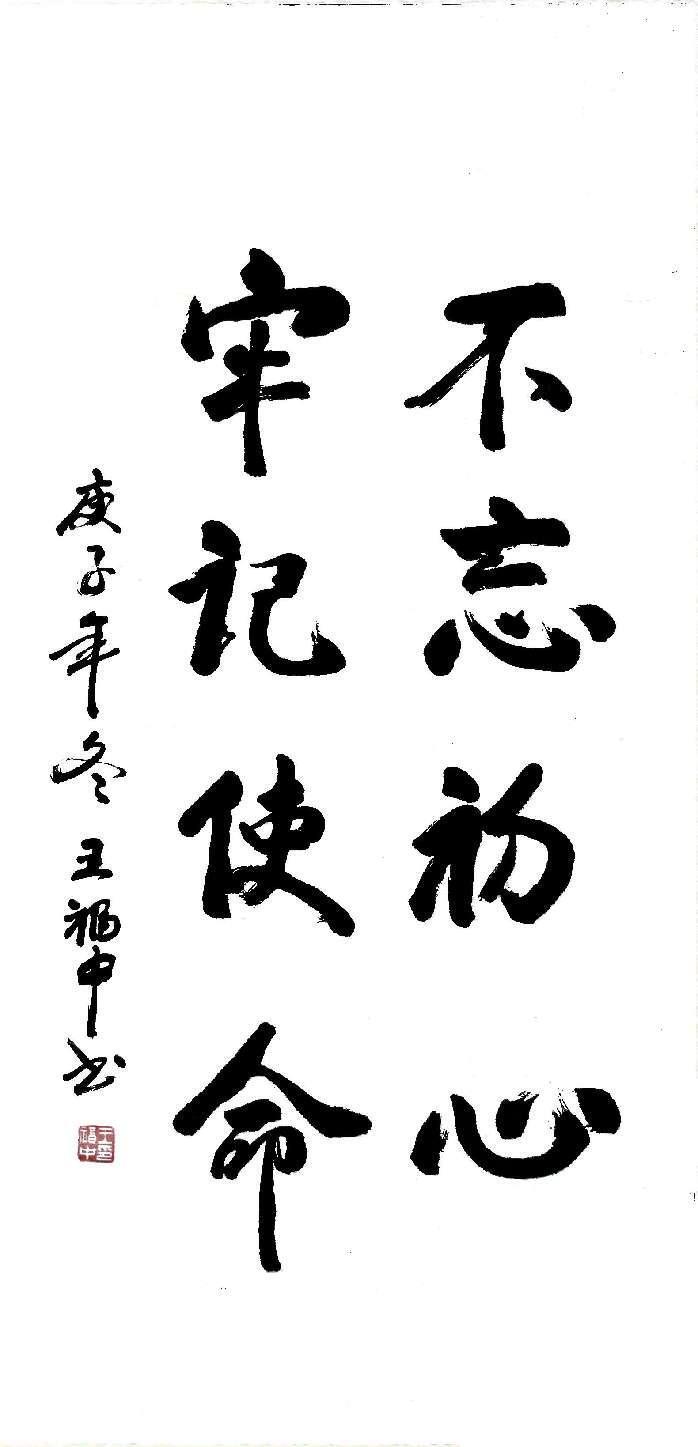 不忘初心
牢记使命
庚子年冬 王福中书